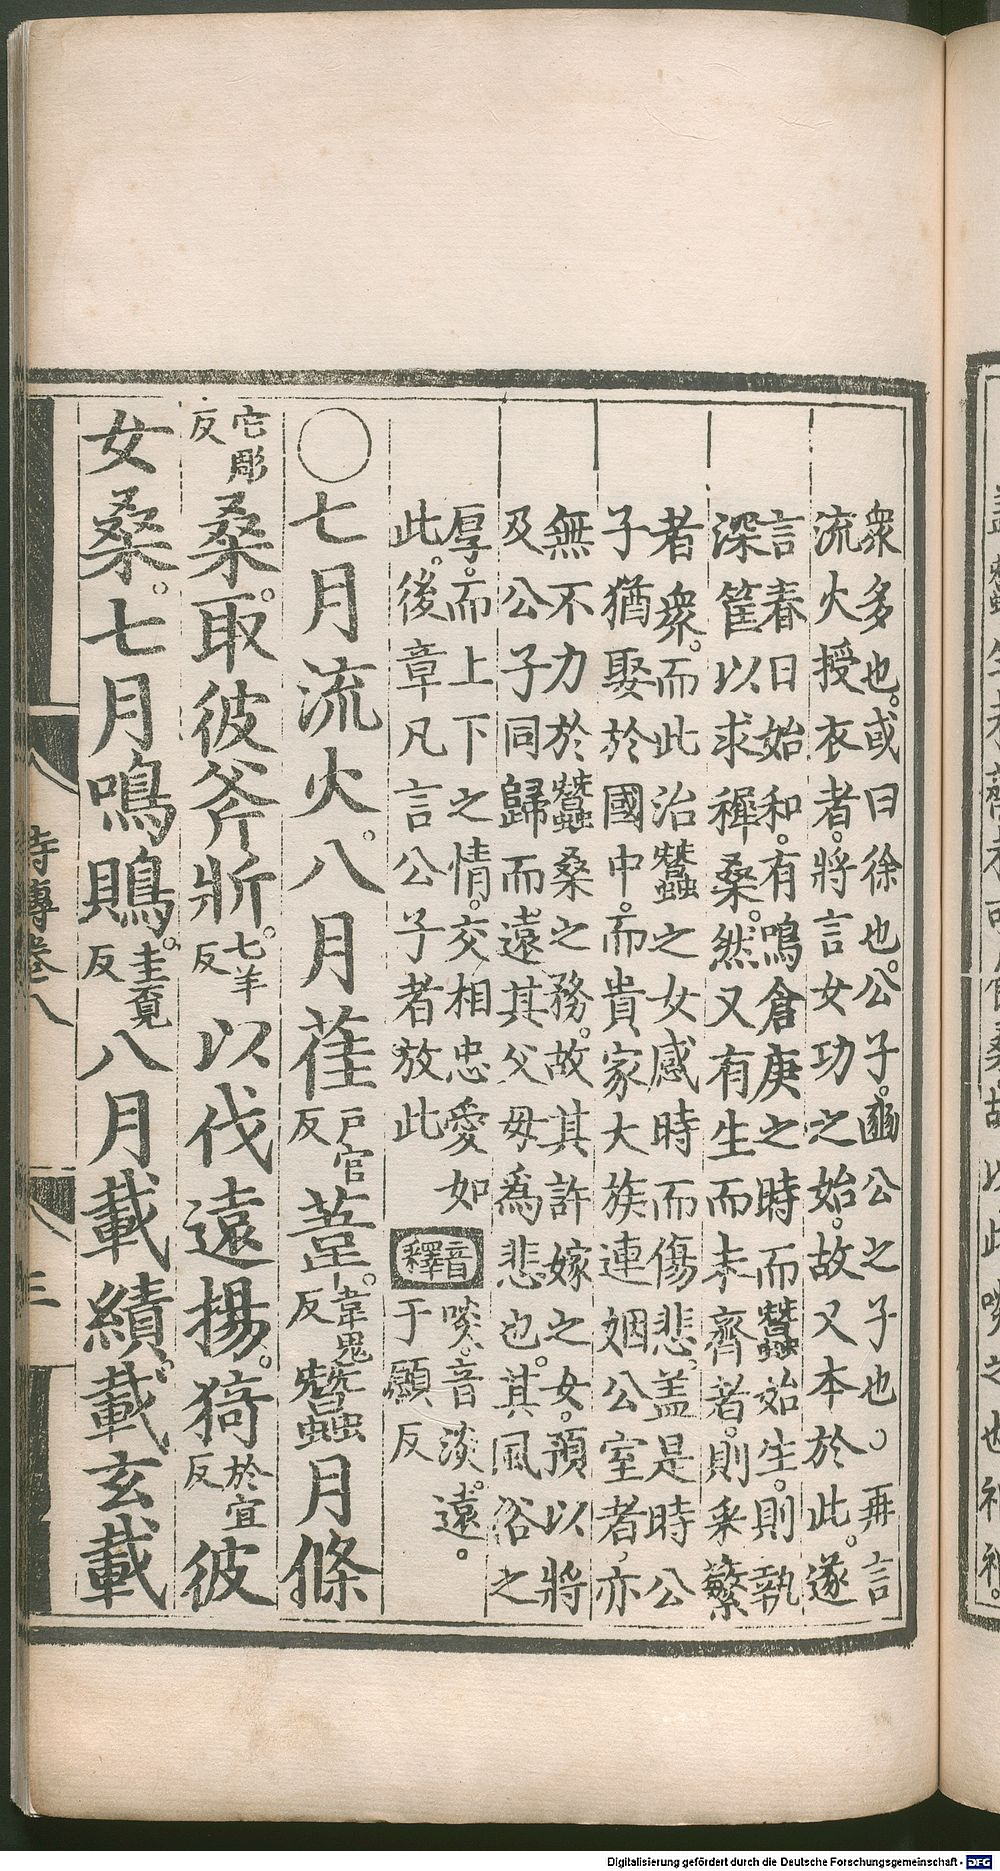 衆多也。或曰徐也。公子。豳公之子也○再言
流火授衣者。將言女功之始。故又本於此。遂
言春日始和。有鳴倉庚之時。而蠶始生。則執
深筐以求穉桑。然又有生而未齊者。則采蘩
者衆。而此治蠶之女。感時而傷悲。盖是時公
子猶娶於國中。而貴家大族連姻公室者。亦
無不力於蠶桑之務。故其許嫁之女。預以將
及公子同歸。而遠其父母爲悲也。其風俗之
厚。而上下之情。交相忠愛如
此。後章凡言公子者。放此
音釋
啖。音淡。遠。
于願反
○七月流火。八月萑
戶官
反
葦。
韋鬼
反
蠶月條
它彫
反
桑。取彼斧斨。
七羊
反
以伐遠揚。猗
於宜
反
彼
女桑。七月鳴鵙。
圭覓
反
八月載績。載玄載
詩傳卷八
三
Digitalisierung gefördert durch die Deutsche Forschungsgemeinschaft - DFG